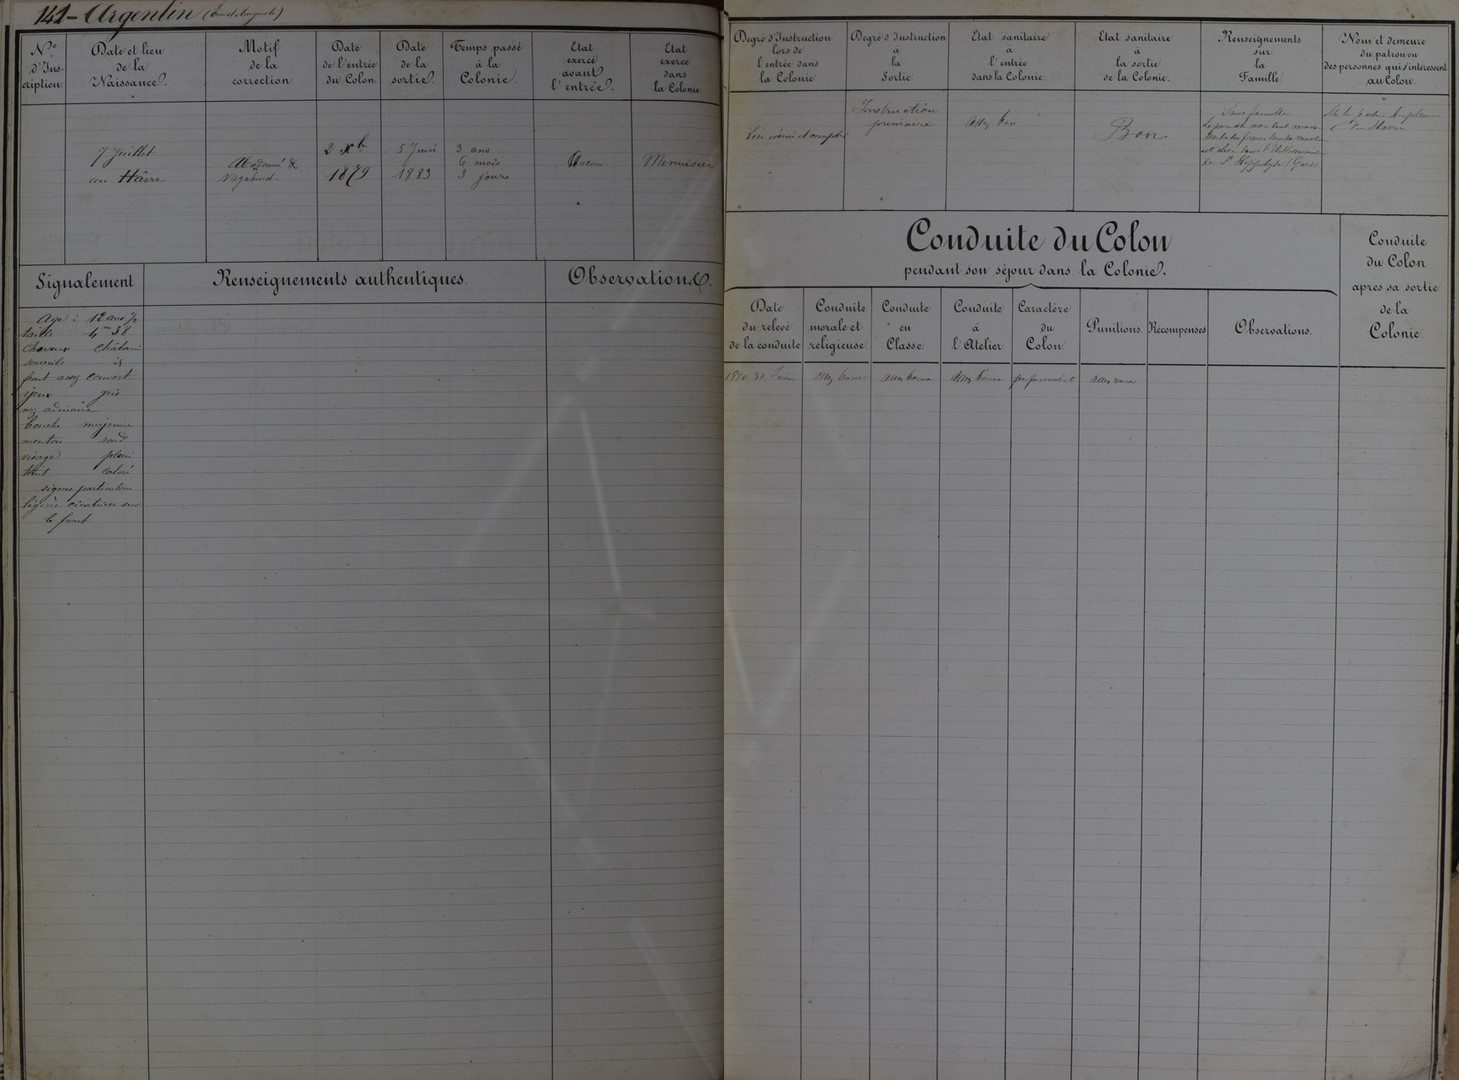 141 - Argentin (Ernest Auguste)
Nº
d'Ins-
cription.
Date et lieu
de la
Naissance.
Motif
de la
correction
Date
de l'entrée
du Colon
Date
de la
sortie
Temps passé
à la
Colonie
Etat
exercé
avant
l'entrée.
Etat
exercé
dans
la Colonie
7 Juillet
au Hâvre
Abandonné &
Vagabond.
2 Xbre
1879
5 Juin
1883
3 ans
6 mois
3 jours
Aucun
Menuisier
Signalement
Renseignements authentiques.
Observations.
Age: 12 ans ½
taille 1m 38
cheveux châtain
sourcils id
front assez couvert
yeux gris
nez ordinaire
bouche moyenne
menton rond
visage plein
teint coloré
signes particuliers
légère cicatrice sur
le front
Degré d'Instruction
lors de
l'entrée dans
la Colonie
Degré d'Instruction
à
la
Sortie.
Etat sanitaire
à
l'entrée
dans la Colonie.
Etat sanitaire
à
la sortie
de la Colonie.
Renseignements
sur
la
Famille.
Nom et demeure
du patron ou
des personnes qui s'intéressent
au Colon.
Lire écrire et compter
Instruction
primaire
Assez bon
Bon
Sans famille
Conduite du Colon
pendant son séjour dans la Colonie.
Conduite
du Colon
apres sa sortie
de la
Colonie.
Date
du relevé
de la conduite
Conduite
morale et
religieuse
Conduite
en
Classe.
Conduite
à
l'Atelier.
Caractère
du
Colon.
Punitions.
Récompenses
Observations.
1880 30 Juin
assez bonne
assez bonne
assez bonne
assez rare